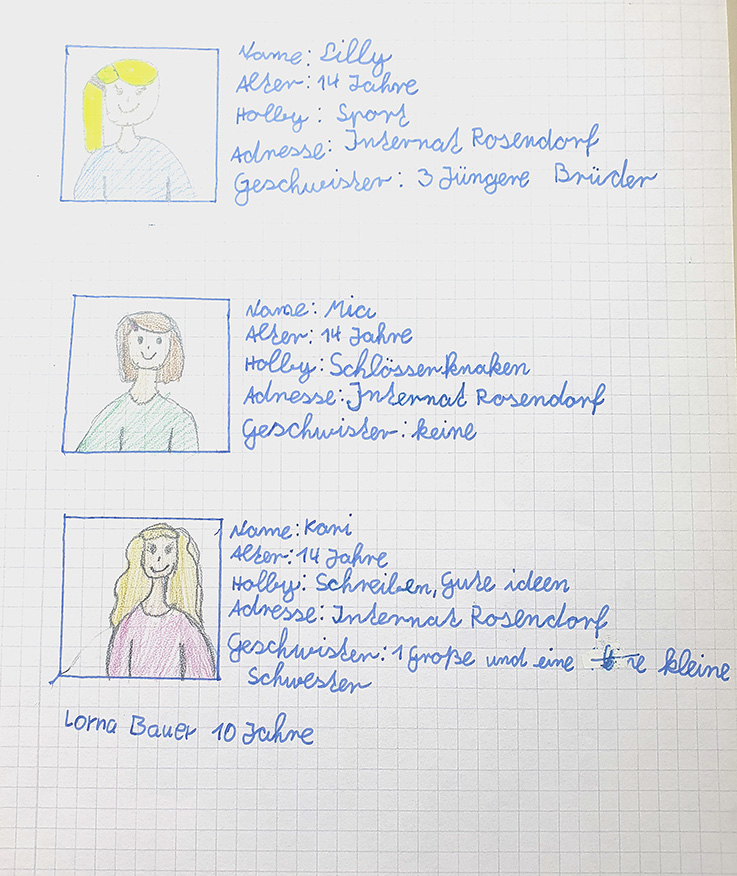 Name: Lilly
Alter: 14 Jahre
Hobby: Sport
Adresse: Internat Rosendorf
Geschwister: 3 Jüngere Brüder
Name: Mia
Alter: 14 Jahre
Hobby: Schlösser knaken
Adresse: Internat Rosendorf
Geschwister: keine
Name: Kari
Alter: 14 Jahre
Hobby: Schreiben, Gute ideen
Adresse: Internat Rosendorf
Geschwister: 1 Große und eine kleine
Schwester
Lorna Bauer 10 Jahre